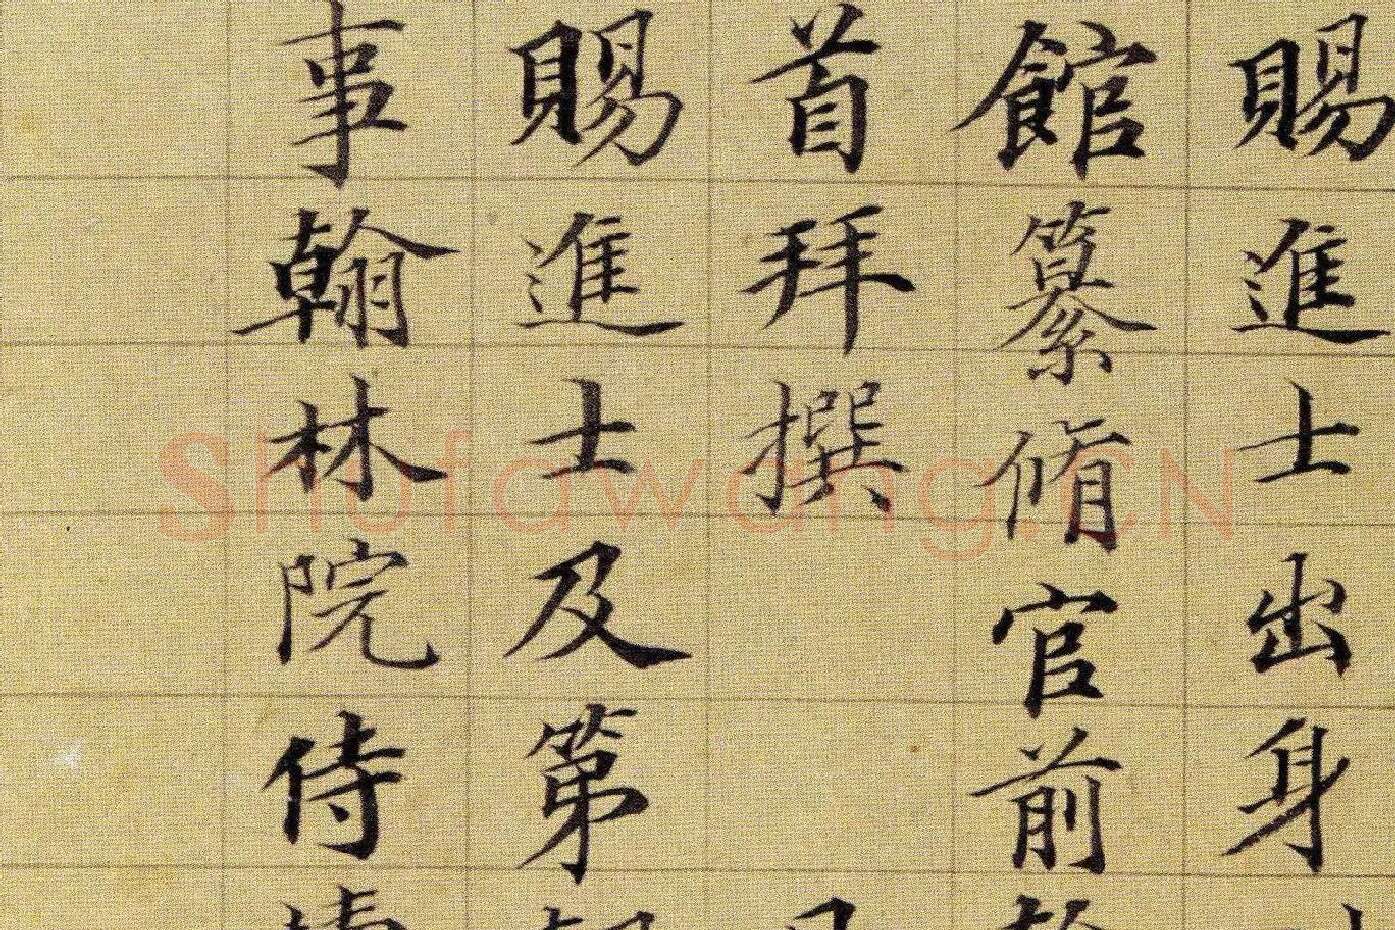 賜進士出身
館纂脩官前
首拜撰
賜進士及第
事翰林院侍
Shufawang.CN